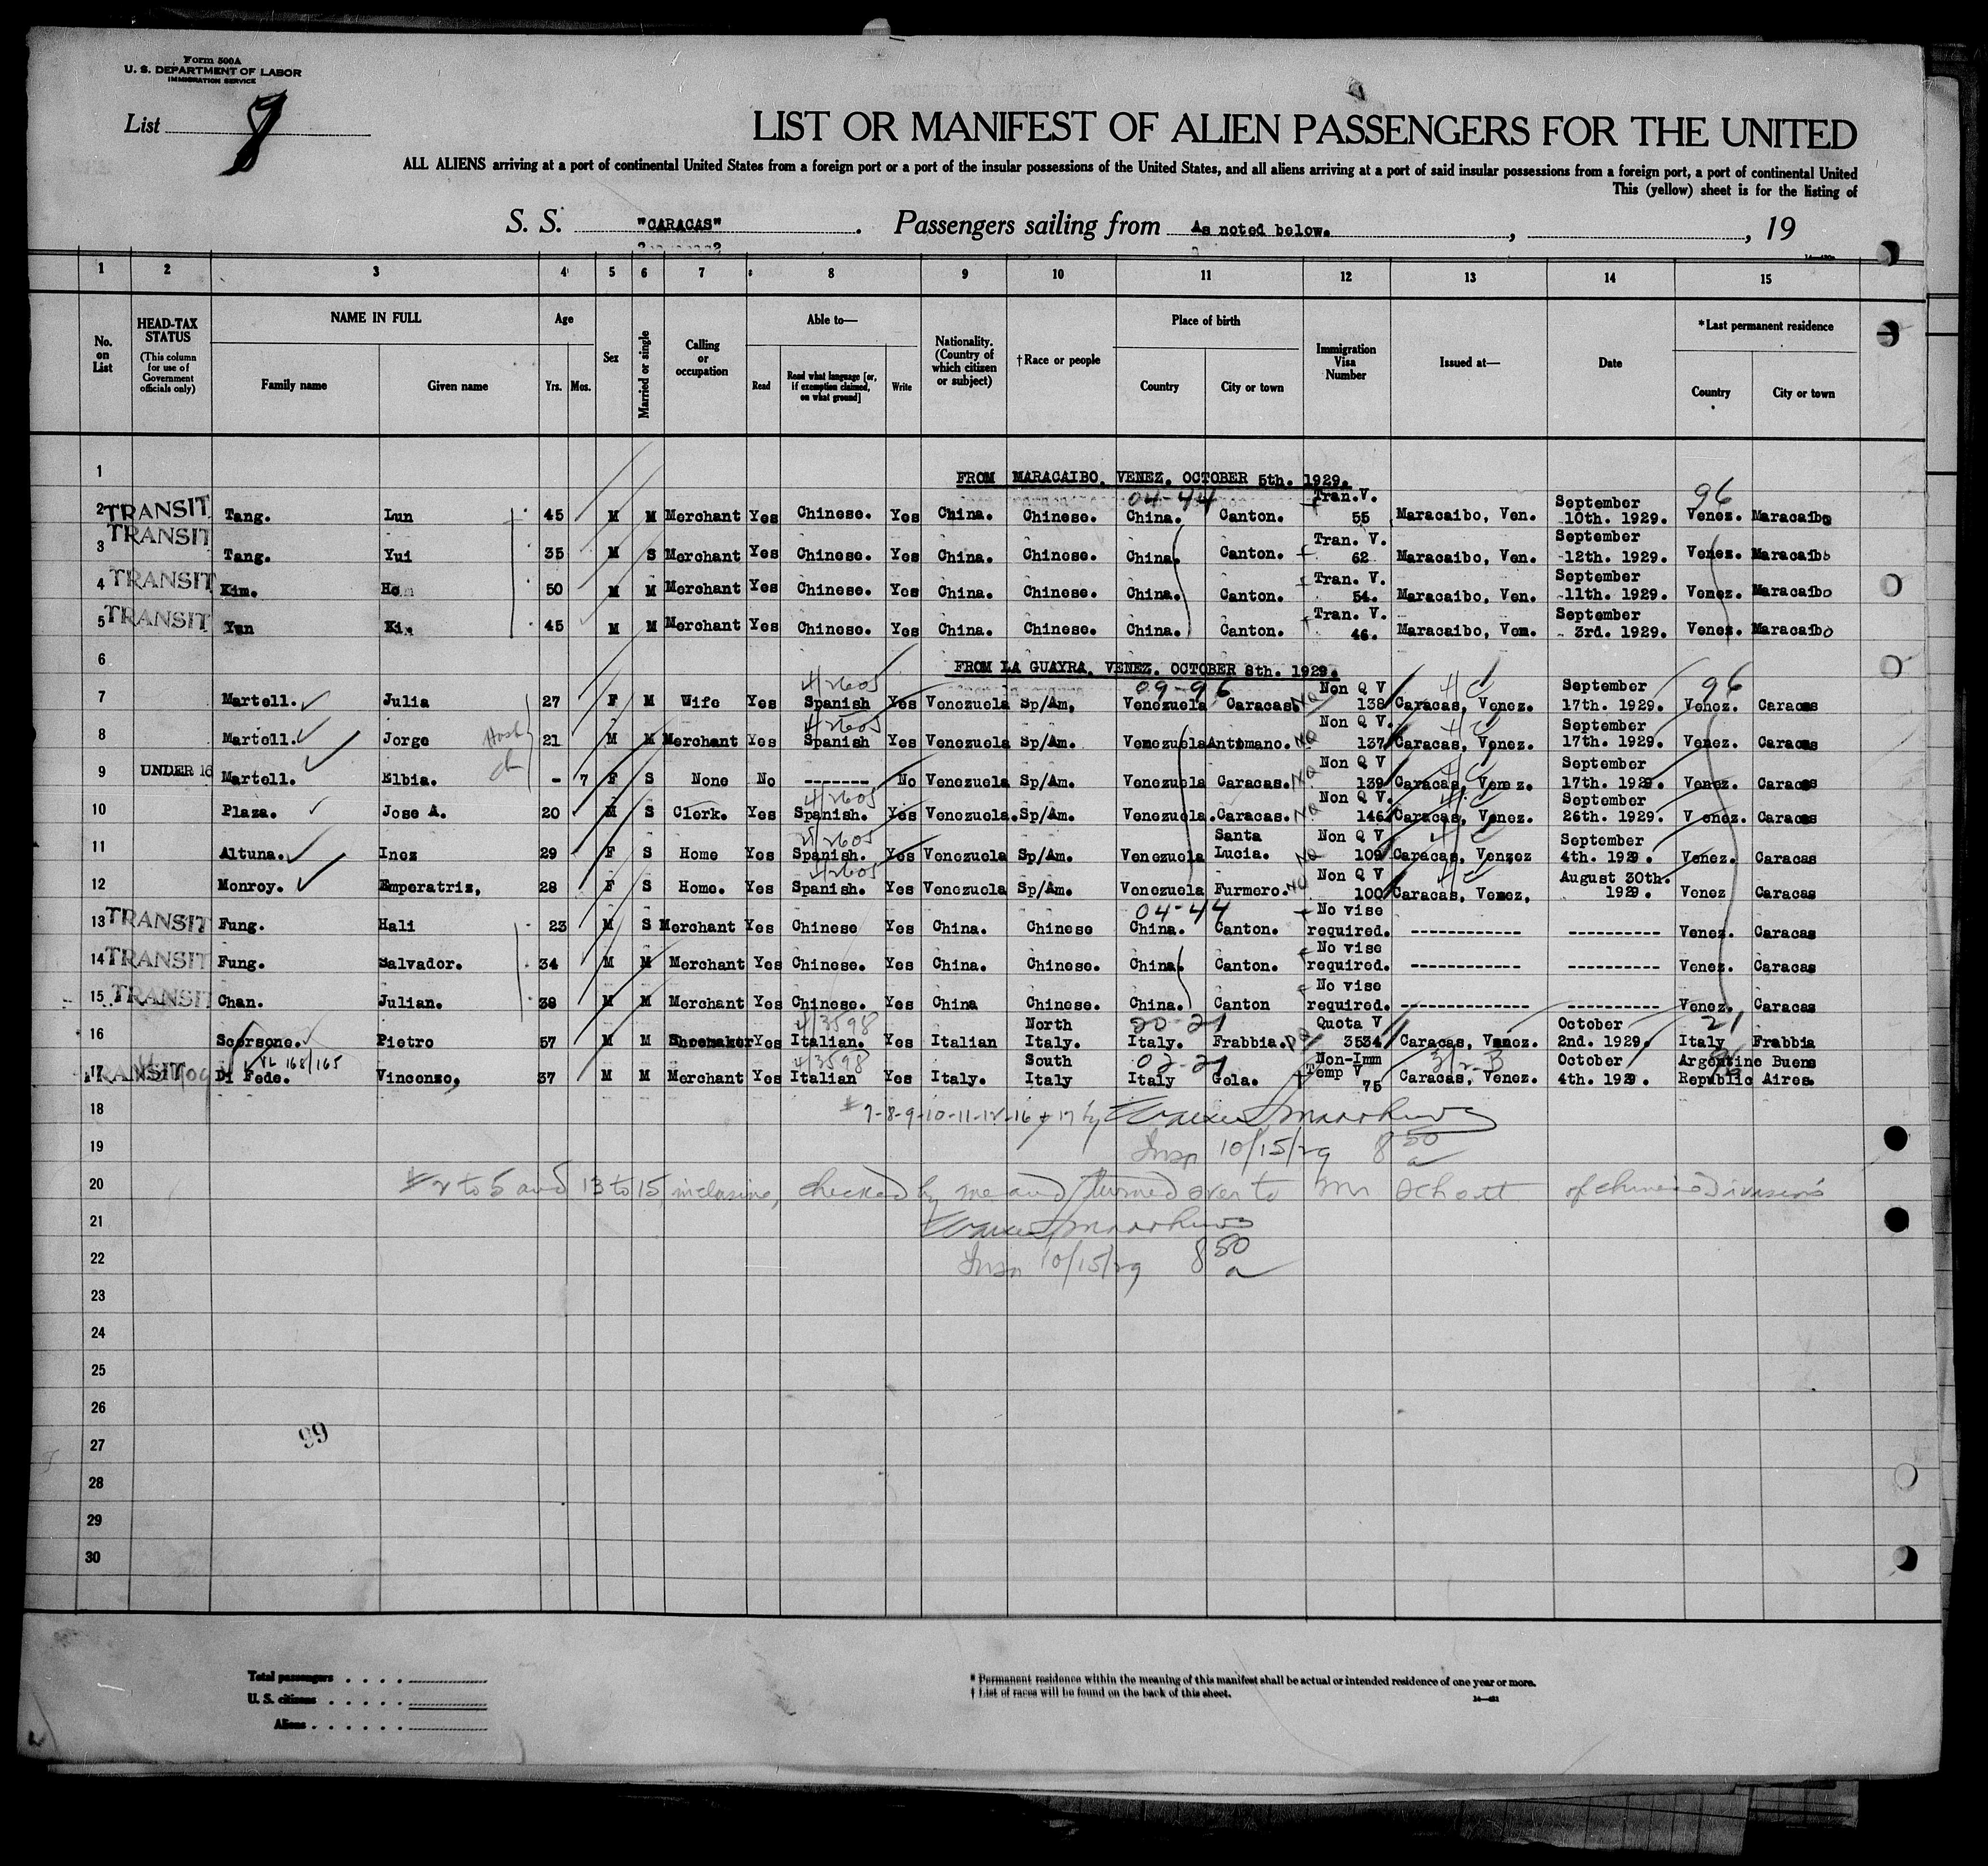 Form 500A
U. S. DEPARTMENT OF LABOR
IMMIGRATION SERVICE
List 9
LIST OR MANIFEST OF ALIEN PASSENGERS FOR THE UNITED
ALL ALIENS arriving at a port of continental United States from a foreign port or a port of the insular possessions of the United States, and all aliens arriving at a port of said insular possessions from a foreign port, a port of continental United
This (yellow) sheet is for the listing of
S. S. "CARACAS". Passengers sailing from As noted below. , , 19
1 2 3 4 5 6 7 8 9 10 11 12 13 14 15
No. on List
HEAD-TAX STATUS (This column for use of Government officials only)
NAME IN FULL Family name Given name
Age Yrs. Mos.
Sex
Married or single
Calling or occupation
Able to— Read Read what language [or, if exemption claimed, on what ground] Write
Nationality. (Country of which citizen or subject)
†Race or people
Place of birth Country City or town
Immigration Visa Number
Issued at—
Date
*Last permanent residence Country City or town
1 FROM MARACAIBO, VENEZ. OCTOBER 5th. 1929.
04-44 96
2 TRANSIT Tang. Lun 45 M M Merchant Yes Chinese. Yes China. Chinese. China. Canton. Tran.V. 55 Maracaibo, Ven. September 10th. 1929. Venez. Maracaibo
3 TRANSIT Tang. Yui 35 M S Merchant Yes Chinese. Yes China. Chinese. China. Canton. Tran. V. 62 Maracaibo, Ven. September 12th. 1929. Venez. Maracaibo
4 TRANSIT Kim. Hon 50 M M Merchant Yes Chinese. Yes China. Chinese. China. Canton. Tran. V. 54. Maracaibo, Ven. September 11th. 1929. Venez. Maracaibo
5 TRANSIT Yun Kim 45 M M Merchant Yes Chinese. Yes China. Chinese. China. Canton. Tran. V. 46. Maracaibo, Ven. September 3rd. 1929. Venez. Maracaibo
6 FROM LA GUAYRA, VENEZ. OCTOBER 8th. 1929.
4/2605 09-96 96
7 Martell. Julia 27 F M Wife Yes Spanish Yes Venezuela Sp/Am. Venezuela Caracas. NQ Non Q V 138 Caracas, Venez. September 17th. 1929. Venez. Caracas
4/2605
8 Martell. Jorge Husb 21 M M Merchant Yes Spanish Yes Venezuela Sp/Am. Venezuela Antimano. NQ Non Q V. 137 Caracas, Venez. September 17th. 1929. Venez. Caracas
9 UNDER 16 Martell. Elbia. ch - 7 F S None No ------- No Venezuela Sp/Am. Venezuela Caracas. NQ Non Q V 139 Caracas, Venez. September 17th. 1929. Venez. Caracas
4/2605
10 Plaza. Jose A. 20 M S Clerk. Yes Spanish. Yes Venezuela. Sp/Am. Venezuela. Caracas. NQ Non Q V. 146 Caracas, Venez. September 26th. 1929. Venez. Caracas
5/2605
11 Altuna. Inez 29 F S Home Yes Spanish. Yes Venezuela Sp/Am. Venezuela Santa Lucia. NQ Non Q V 109 Caracas, Venzez September 4th. 1929. Venez. Caracas
4/2605
12 Monroy. Emperatriz, 28 F S Home. Yes Spanish. Yes Venezuela Sp/Am. Venezuela Furmero. NQ Non Q V 100 Caracas, Venez, August 30th. 1929. Venez Caracas
04-44
13 TRANSIT Fung. Hali 23 M S Merchant Yes Chinese Yes China. Chinese China. Canton. No vise required. ------------ ---------- Venez. Caracas
14 TRANSIT Fung. Salvador. 34 M M Merchant Yes Chinese. Yes China. Chinese. China. Canton. No vise required. ------------ ---------- Venez. Caracas
15 TRANSIT Chan. Julian. 38 M M Merchant Yes Chinese. Yes China Chinese. China. Canton No vise required. -------------- ---------- Venez. Caracas
4/3598 20-21 21
16 Scorsone. Pietro 57 M M Shoemaker Yes Italian. Yes Italian North Italy. Italy. Frabbia. Quota V 3534 Caracas, Venez. October 2nd. 1929. Italy Frabbia
VL 168/165 4/3598 02-21 3/2-3
17 TRANSIT Di Fede. Vincenzo, 37 M M Merchant Yes Italian Yes Italy. South Italy Italy Gela. Non-Imm Temp V 75 Caracas, Venez. October 4th. 1929. Argentine Republic Buens Aires.
18 # 7-8-9-10-11-12-16 + 17 by
19 Insp 10/15/29 8 50 a
20 # 2 to 5 and 13 to 15 inclusive, checked by me and turned over to Mr Schott of Chinese Division
21
22 Insp 10/15/29 8 50 a
23
24
25
26
27
99
28
29
30
Total passengers . . . .
U. S. citizens . . . . .
Aliens . . . . . .
* Permanent residence within the meaning of this manifest shall be actual or intended residence of one year or more.
† List of races will be found on the back of this sheet.